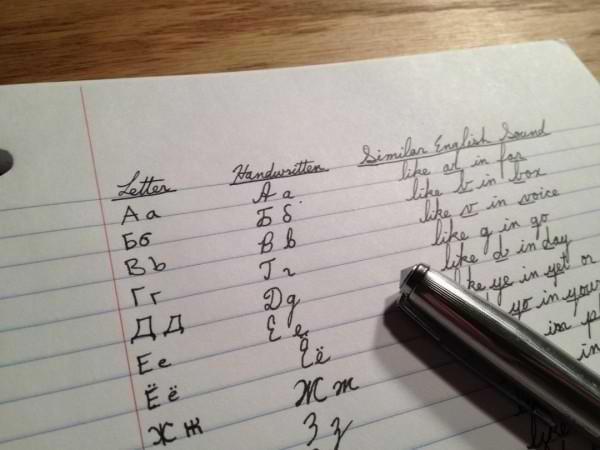 Letter Handwritten Similar English Sound
Аа А а like ar in far
Бб Б б like b in box
Вв В в like v in voice
Гг Г г like g in go
Дд Д д like d in day
Ее Е е like ye in yet or
Ёё Ё ё yo in your
Жж Ж ж in
З з in
like